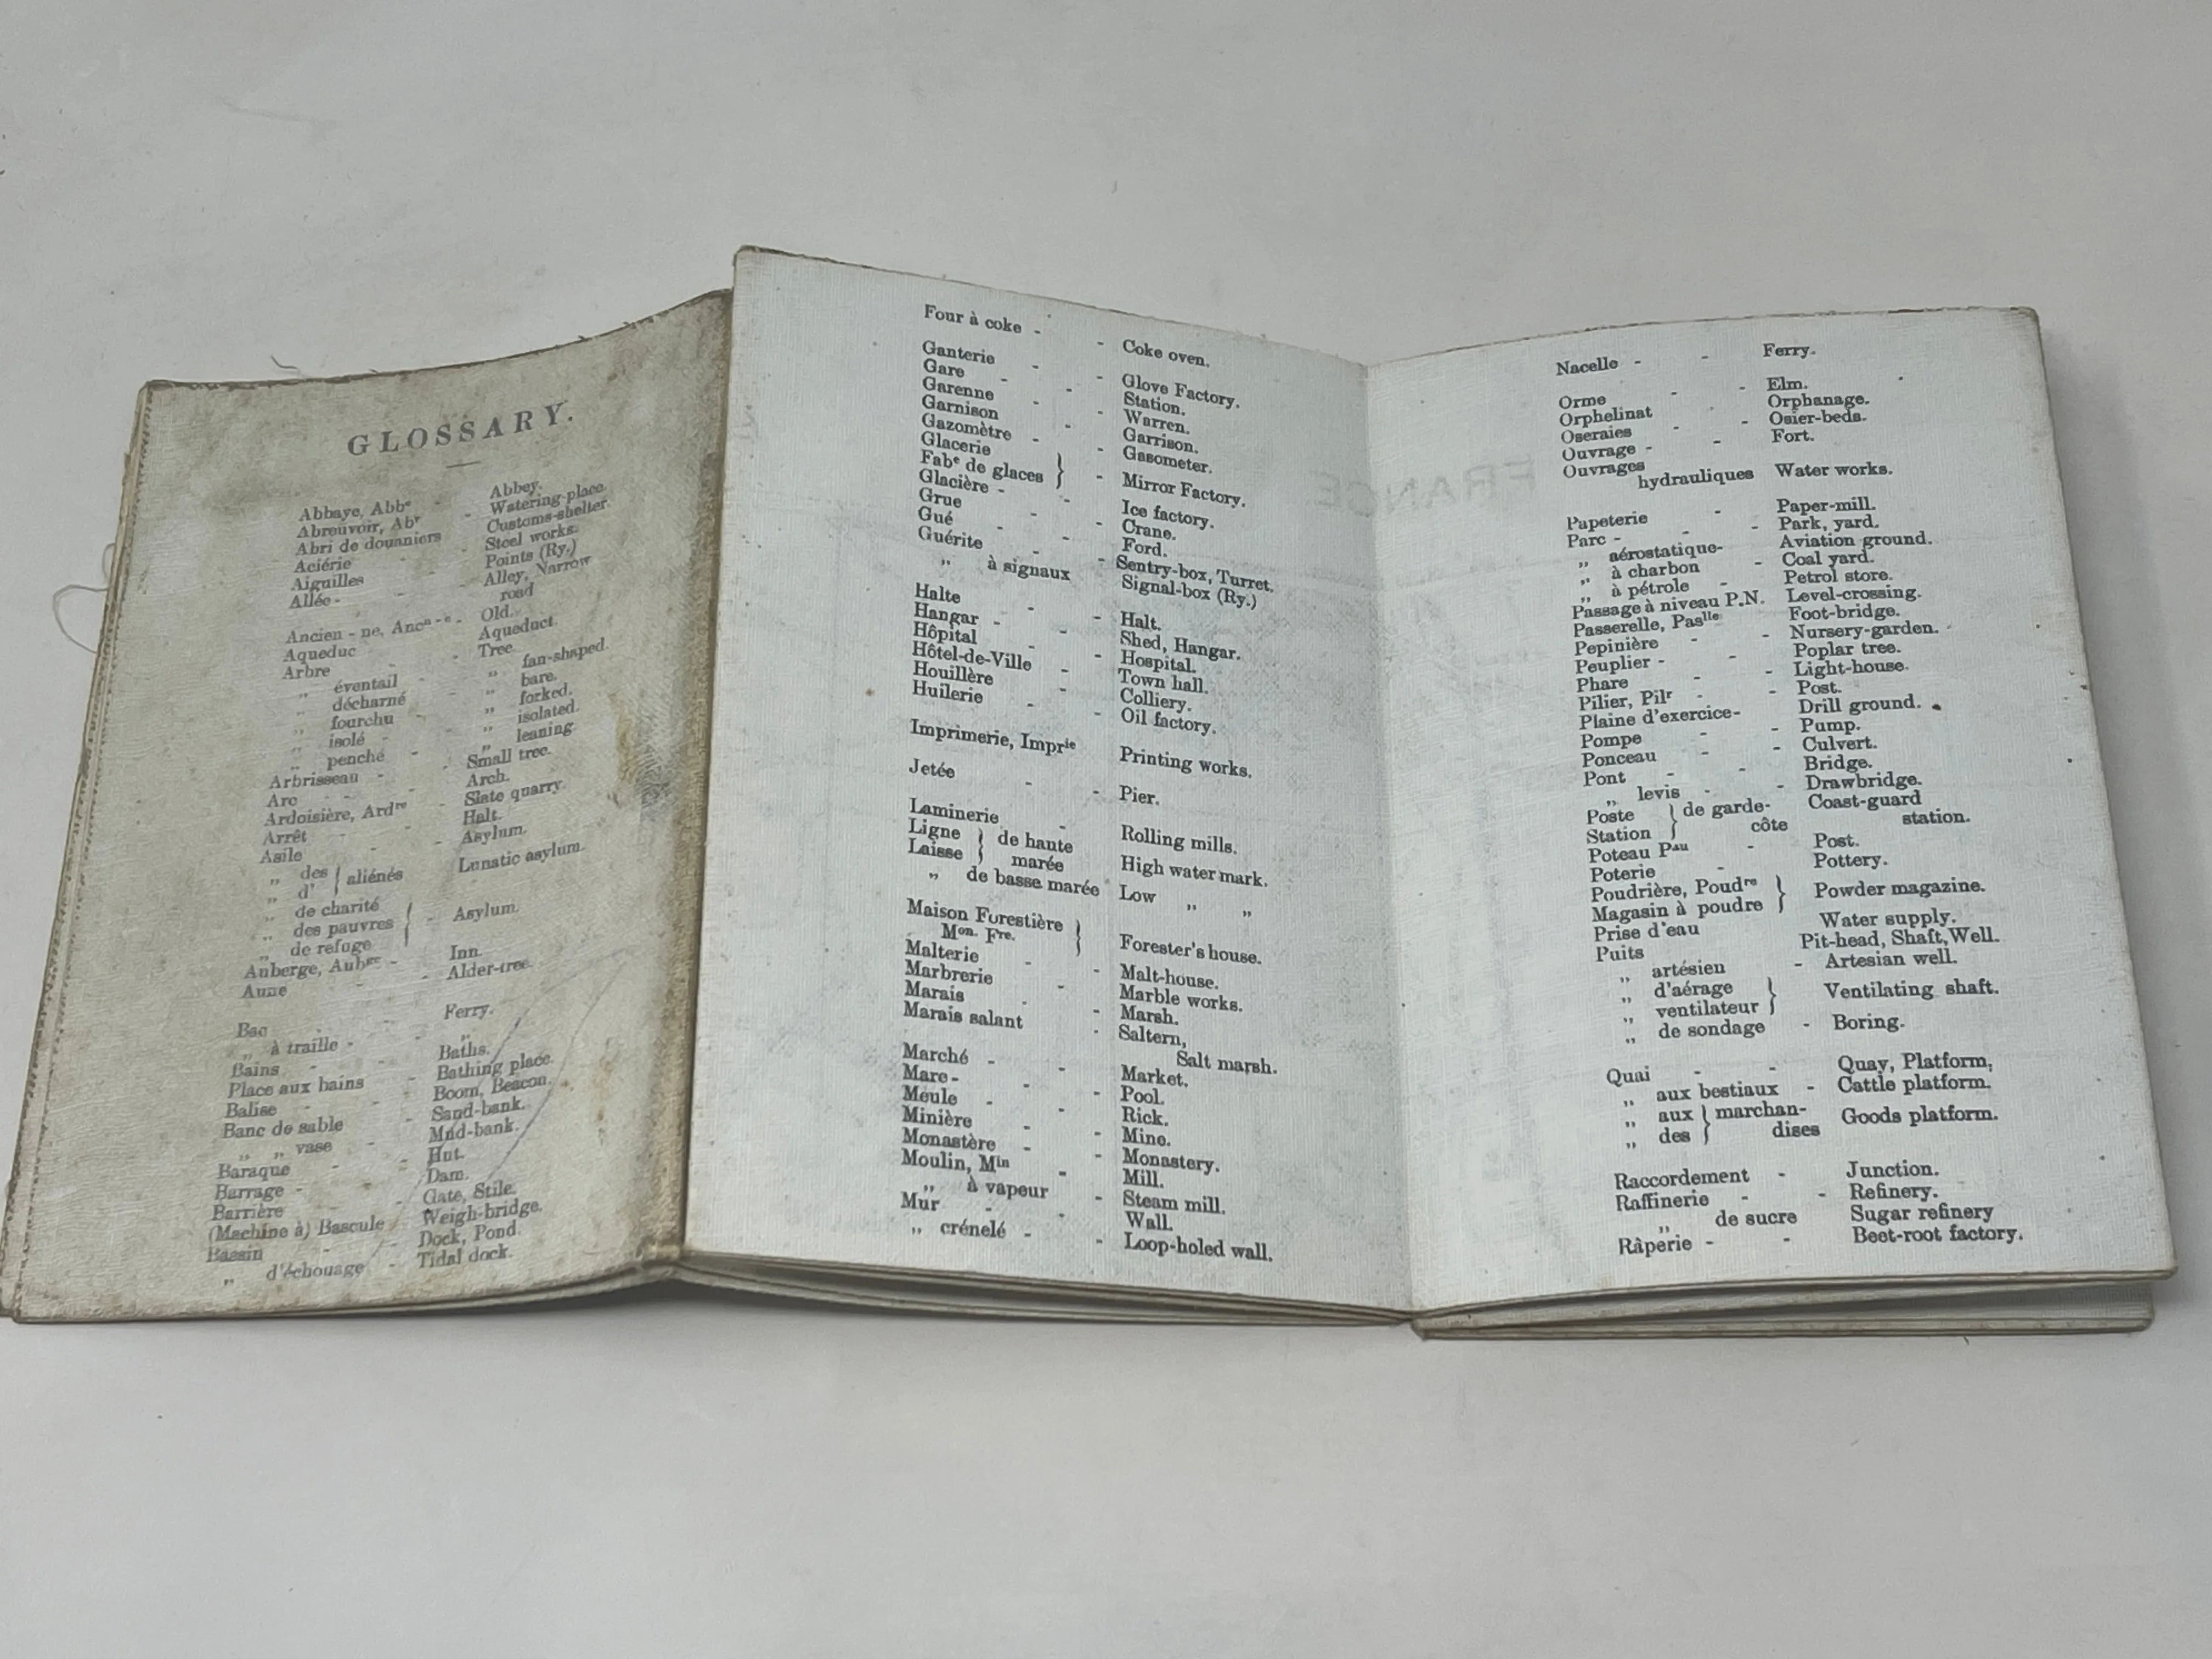 GLOSSARY.
Abbaye, Abbe - Abbey.
Abreuvoir, Abr - Watering-place.
Abri de douaniers Customs-shelter.
Aciérie - Steel works.
Aiguilles - Points (Ry.)
Allée - - Alley, Narrow
road
Ancien - ne, Ancn - e - Old.
Aqueduc - Aqueduct.
Arbre - - Tree.
„ éventail - „ fan-shaped.
„ décharné „ bare.
„ fourchu - „ forked.
„ isolé - - „ isolated.
„ penché - „ leaning.
Arbrisseau - - Small tree.
Arc - - Arch.
Ardoisière, Ardre - Slate quarry.
Arrêt - - Halt.
Asile - - Asylum.
„ des } aliénés Lunatic asylum.
„ d'
„ de charité
„ des pauvres } - Asylum.
„ de refuge
Auberge, Aubge - Inn.
Aune - - Alder-tree.
Bac - - Ferry.
„ à traille - - „
Bains - - Baths.
Place aux bains - Bathing place.
Balise - - Boom, Beacon.
Banc de sable - Sand-bank.
„ „ vase - Mud-bank.
Baraque - - Hut.
Barrage - - Dam.
Barrière - Gate, Stile.
(Machine à) Bascule Weigh-bridge.
Bassin - - Dock, Pond.
„ d'échouage - Tidal dock.
Four à coke - - Coke oven.
Ganterie - - Glove Factory.
Gare - - Station.
Garenne - - Warren.
Garnison - Garrison.
Gazomètre - - Gasometer.
Glacerie
Fabe de glaces } - Mirror Factory.
Glacière - - Ice factory.
Grue - - Crane.
Gué - - Ford.
Guérite - - Sentry-box, Turret.
„ à signaux Signal-box (Ry.)
Halte - - Halt.
Hangar - - Shed, Hangar.
Hôpital - - Hospital.
Hôtel-de-Ville - Town hall.
Houillère - Colliery.
Huilerie - - Oil factory.
Imprimerie, Imprie Printing works.
Jetée - - Pier.
Laminerie - Rolling mills.
Ligne } de haute
Laisse } marée High water mark.
„ de basse marée Low „ „
Maison Forestière }
Mon. Fre. } Forester's house.
Malterie - - Malt-house.
Marbrerie - Marble works.
Marais - - Marsh.
Marais salant - Saltern,
Salt marsh.
Marché - - Market.
Mare - - Pool.
Meule - - Rick.
Minière - - Mine.
Monastère - - Monastery.
Moulin, Min - Mill.
„ à vapeur - Steam mill.
Mur - - Wall.
„ crénelé - - Loop-holed wall.
FRANCE
Nacelle - - Ferry.
Orme - - Elm.
Orphelinat - Orphanage.
Oseraies - - Osier-beds.
Ouvrage - - Fort.
Ouvrages
hydrauliques Water works.
Papeterie - Paper-mill.
Parc - - - Park, yard.
„ aérostatique- Aviation ground.
„ à charbon - Coal yard.
„ à pétrole - Petrol store.
Passage à niveau P.N. Level-crossing.
Passerelle, Paslle Foot-bridge.
Pepinière - - Nursery-garden.
Peuplier - - Poplar tree.
Phare - - Light-house.
Pilier, Pilr - - Post.
Plaine d'exercice- Drill ground.
Pompe - - Pump.
Ponceau - - Culvert.
Pont - - Bridge.
„ levis - - Drawbridge.
Poste } de garde- Coast-guard
Station } côte station.
Poteau Pau - Post.
Poterie - Pottery.
Poudrière, Poudre }
Magasin à poudre } Powder magazine.
Prise d'eau Water supply.
Puits Pit-head, Shaft, Well.
„ artésien - Artesian well.
„ d'aérage }
„ ventilateur } Ventilating shaft.
„ de sondage - Boring.
Quai - - Quay, Platform,
„ aux bestiaux - Cattle platform.
„ aux } marchan-
„ des } dises Goods platform.
Raccordement - Junction.
Raffinerie - - Refinery.
„ de sucre Sugar refinery
Râperie - - Beet-root factory.